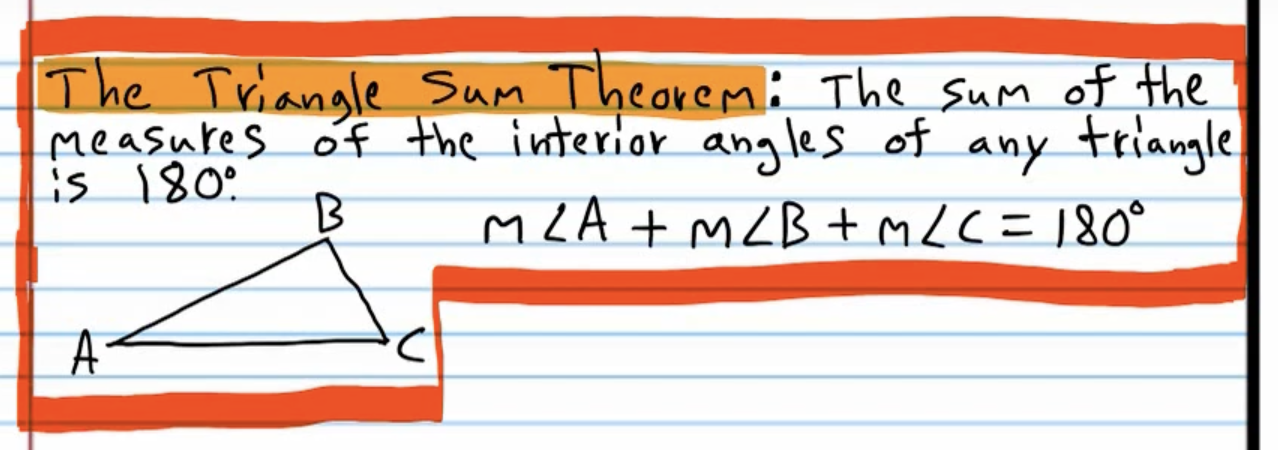 The Triangle Sum Theorem: The sum of the
measures of the interior angles of any triangle
is 180°.
B
m∠A + m∠B + m∠C = 180°
A
C